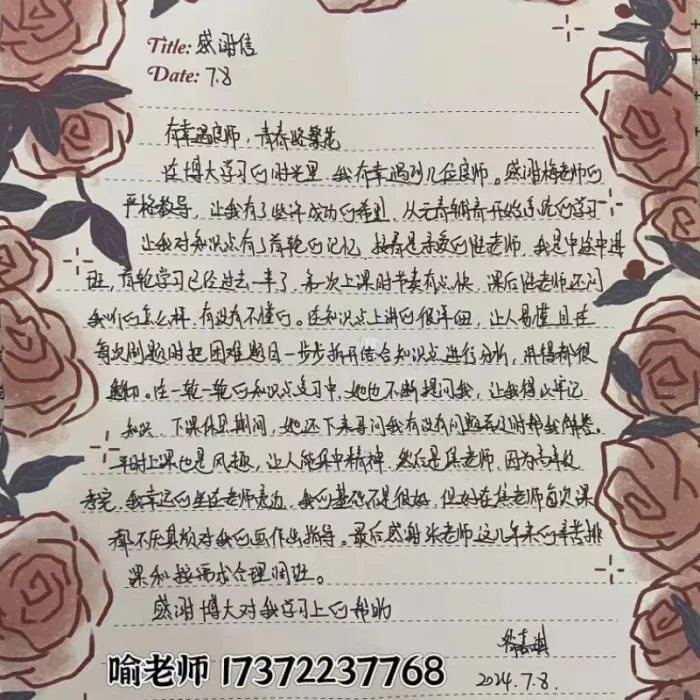 Title: 感谢信
Date: 7.8
有幸遇良师，青春路繁花
在博大学习的时光里，我有幸遇到几位良师。感谢梅老师的
严格教导，让我有了些许成功的希望，从元春朝春开始系统的学习
让我对知识点有了首轮的记忆，接着是亲爱的陆老师，我是中途中进
班，首轮学习已经过去一半了，每次上课时节奏有点快，课后陆老师还问
我们的怎么样，有没有不懂的。在知识点上讲的很详细，让人易懂且在
每次刷题时把困难题目一步步拆开结合知识点进行分析，讲得都很
。在一轮一轮的知识点复习中，她也不断提问我，让我得以牢记
知识，下课休息期间，她还下来寻问我有没有问题并及时帮我解答。
平时上课也是风趣，让人能集中精神，然后是焦老师，因为高年级
考完，我幸运的坐在老师旁边，我的基础不是很好，但好在焦老师每次课
都不厌其烦对我的画作出指导。最后感谢张老师这几年来的辛苦排
课和按需求合理调班。
感谢博大对我学习上的帮助
2024.7.8.
喻老师 17372237768